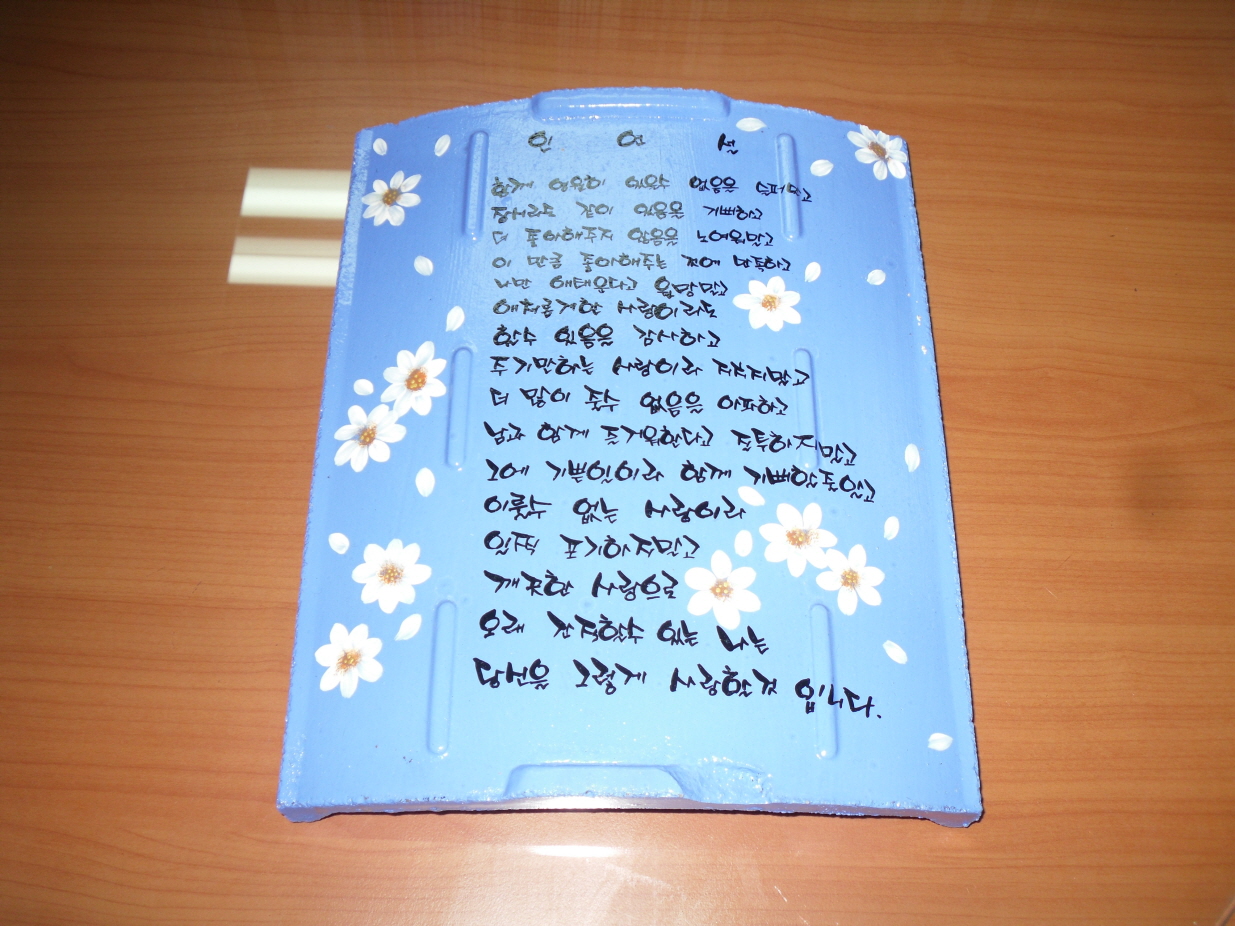 인 연 설
함께 영원히 있을수 없음을 슬퍼말고
잠시라도 같이 있음을 기뻐하고
더 좋아해주지 않음을 노여워말고
이 만큼 좋아해주는 것에 만족하고
나만 애태운다고 원망말고
애처롭기한 사랑이라도
할수 있음을 감사하고
주기만하는 사랑이라 지치지말고
더 많이 줄수 없음을 아파하고
남과 함께 즐거워한다고 질투하지말고
그에 기쁨일이라 함께 기뻐할줄알고
이룰수 없는 사랑이라
일찍 포기하지말고
깨끗한 사랑으로
오래 간직할수 있는 나는
당신을 그렇게 사랑할것 입니다.